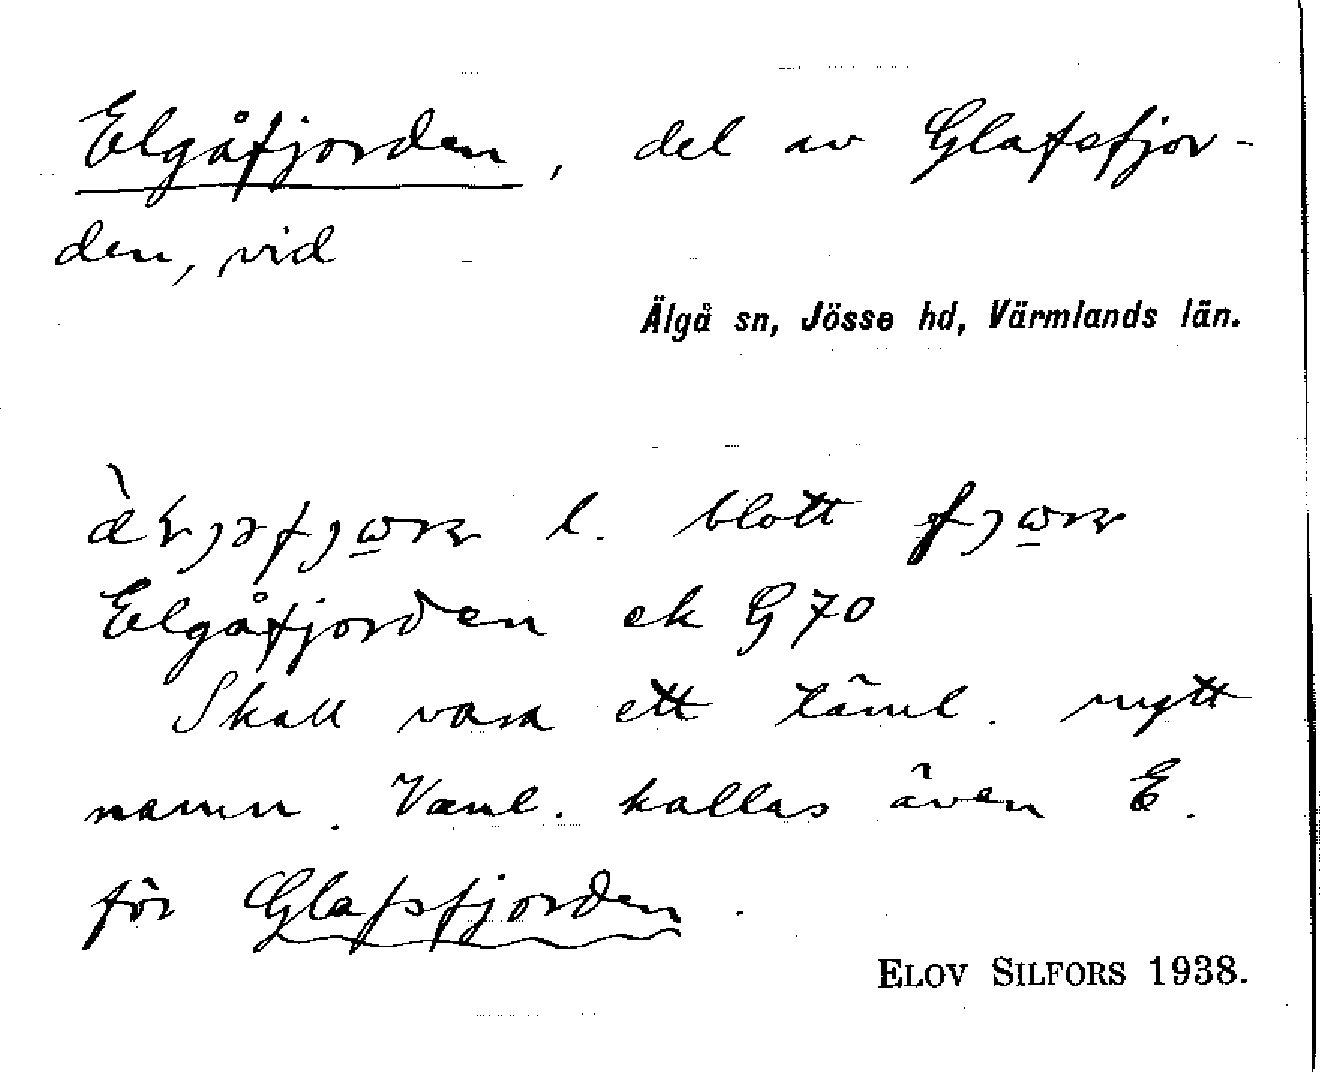 Elgåfjorden, del av Glafsfjor-
den, vid
Älgå sn, Jösse hd, Värmlands län.
l. blott
Elgåfjorden ek G 70
Skall vara ett täml. nytt
namn. Vanl. kallas även E.
för Glafsfjorden.
ELOV SILFORS 1938.